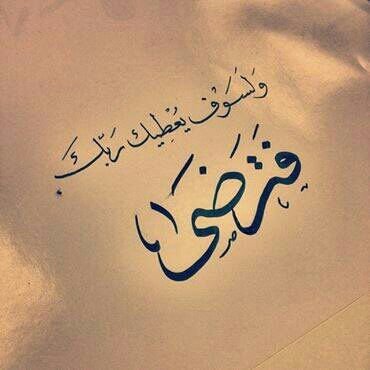 وَلَسَوْف يُعْطِيك رَبّكَ
فَتَرَضَىٰ